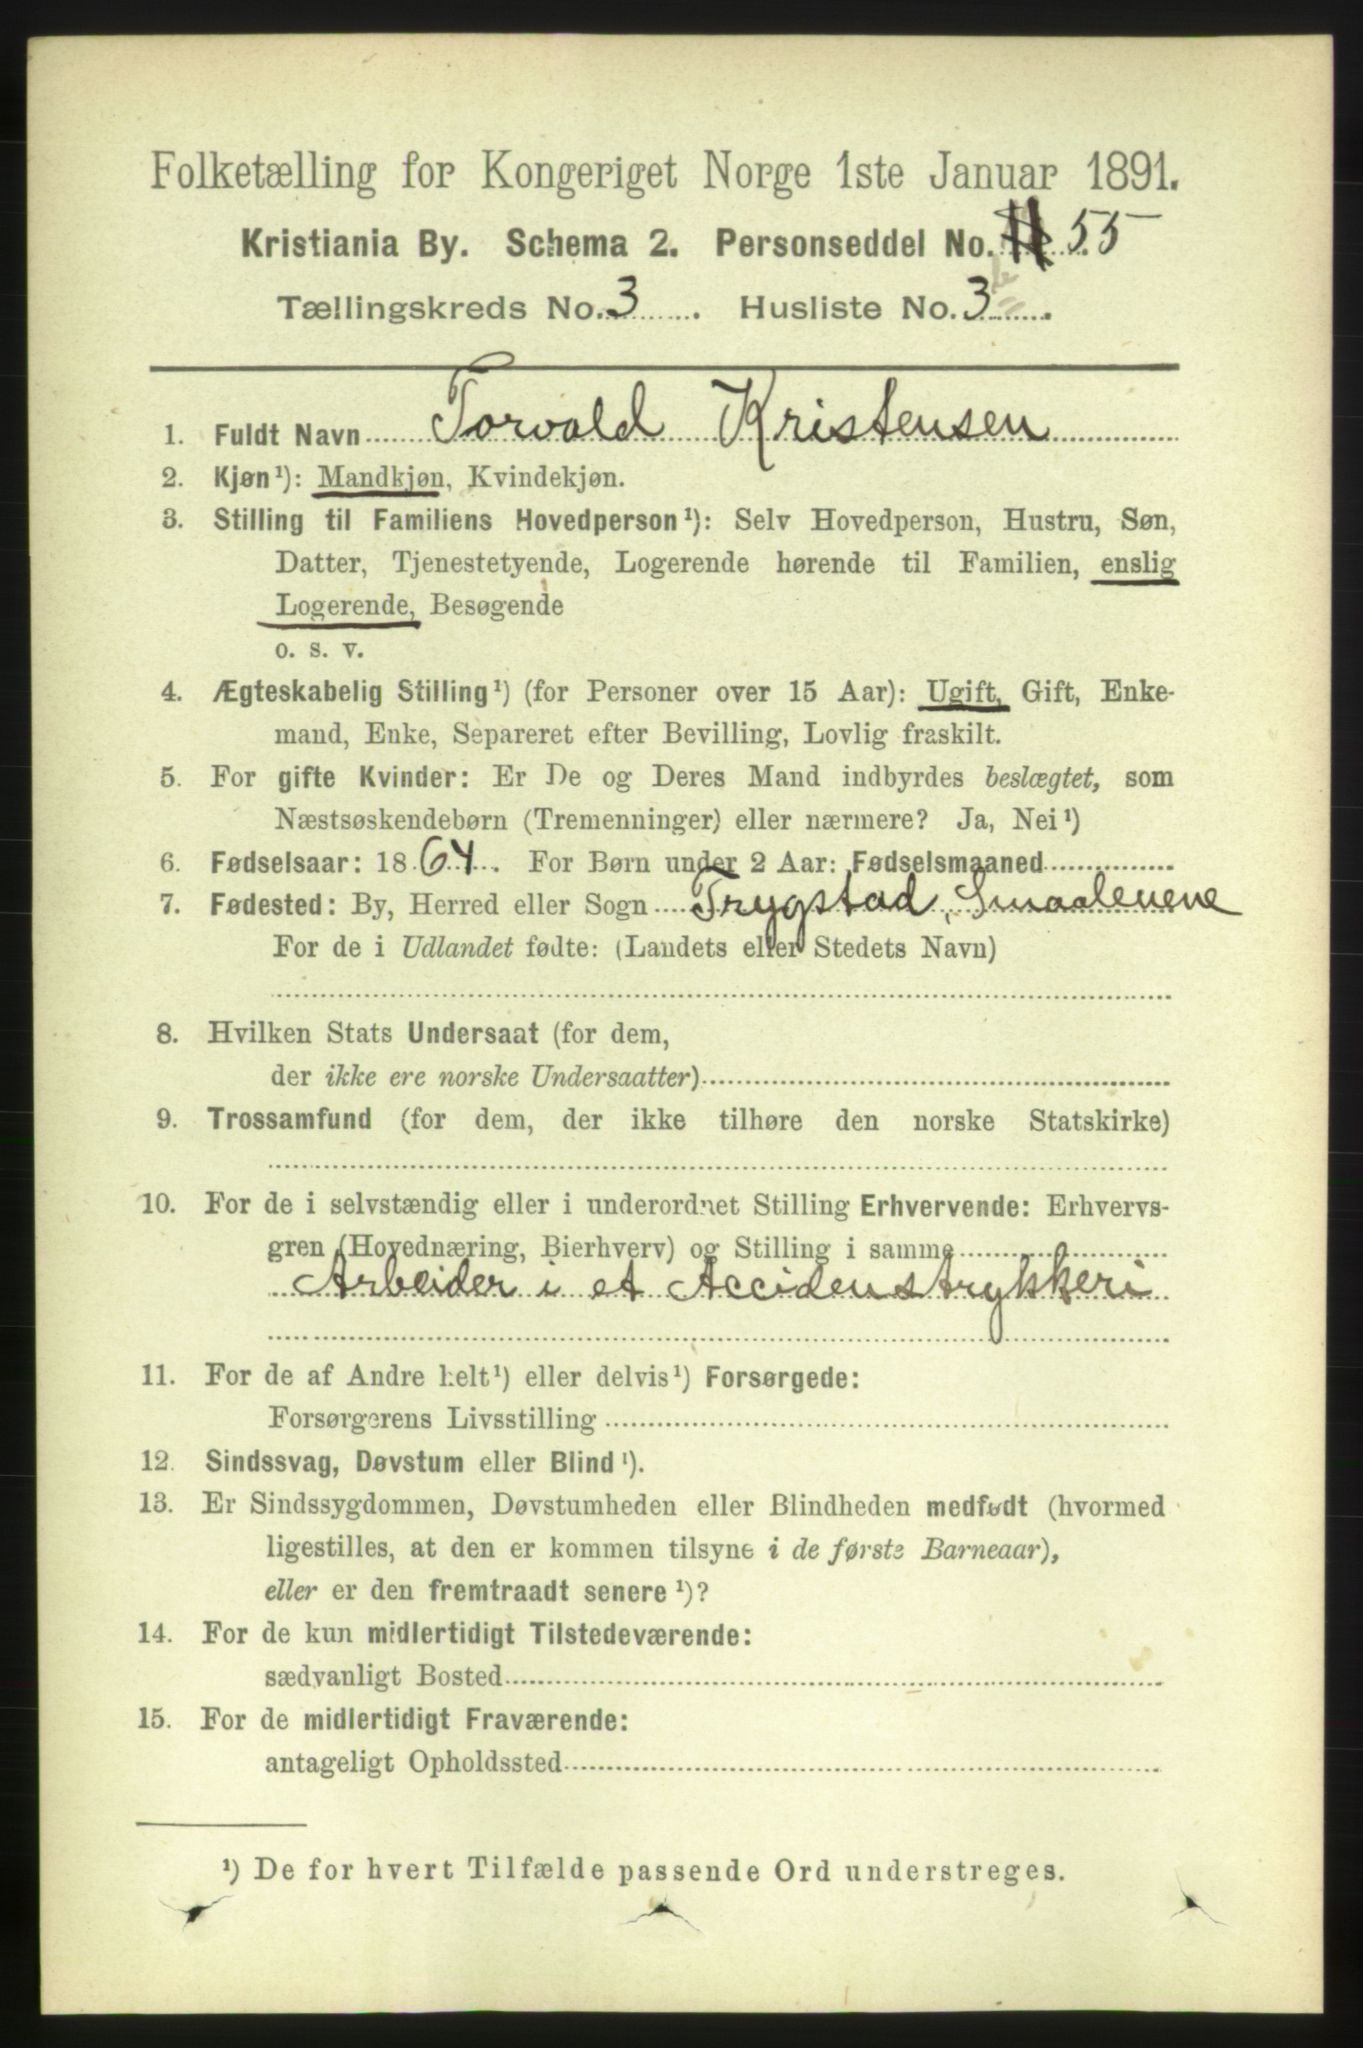 Folketælling for Kongeriget Norge 1ste Januar 1891.
Kristiania By. Schema 2. Personseddel No. 55
Tællingskreds No. 3. Husliste No. 3.
1. Fuldt Navn Torvald Kristensen
2. Kjøn¹): Mandkjøn, Kvindekjøn.
3. Stilling til Familiens Hovedperson¹): Selv Hovedperson, Hustru, Søn,
Datter, Tjenestetyende, Logerende hørende til Familien, enslig
Logerende, Besøgende
o. s. v.
4. Ægteskabelig Stilling¹) (for Personer over 15 Aar): Ugift, Gift, Enke-
mand, Enke, Separeret efter Bevilling, Lovlig fraskilt.
5. For gifte Kvinder: Er De og Deres Mand indbyrdes beslægtet, som
Næstsøskendebørn (Tremenninger) eller nærmere? Ja, Nei¹)
6. Fødselsaar: 1864. For Børn under 2 Aar: Fødselsmaaned
7. Fødested: By, Herred eller Sogn Trygstad, Smaalenene
For de i Udlandet fødte: (Landets eller Stedets Navn)
8. Hvilken Stats Undersaat (for dem,
der ikke ere norske Undersaatter)
9. Trossamfund (for dem, der ikke tilhøre den norske Statskirke)
10. For de i selvstændig eller i underordnet Stilling Erhvervende: Erhvervs-
gren (Hovednæring, Bierhverv) og Stilling i samme
Arbeider i et Accidenstrykkeri
11. For de af Andre helt¹) eller delvis¹) Forsørgede:
Forsørgerens Livsstilling
12. Sindssvag, Døvstum eller Blind¹).
13. Er Sindssygdommen, Døvstumheden eller Blindheden medfødt (hvormed
ligestilles, at den er kommen tilsyne i de første Barneaar),
eller er den fremtraadt senere¹)?
14. For de kun midlertidigt Tilstedeværende:
sædvanligt Bosted
15. For de midlertidigt Fraværende:
antageligt Opholdssted
¹) De for hvert Tilfælde passende Ord understreges.